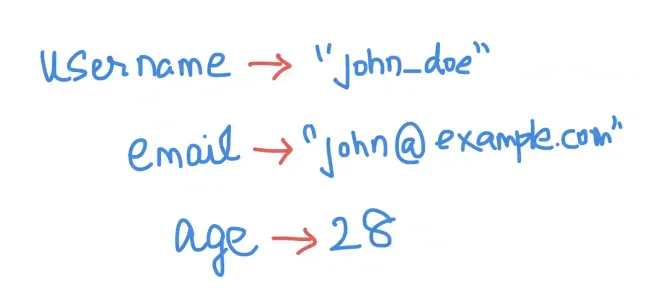 username → "john_doe"
email → "john@example.com"
age → 28